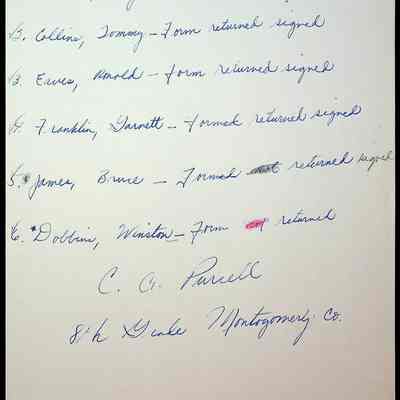 2. Collins, Tommy – Form returned signed
3. Eaves, Arnold – form returned signed
4. Franklin, Garnett – Formed returned signed
5. James, Bruce – Formed not returned signed
6. *Dobbins, Winston – Form returned
C. G. Purcell
8th Grade Montogomerty Co.